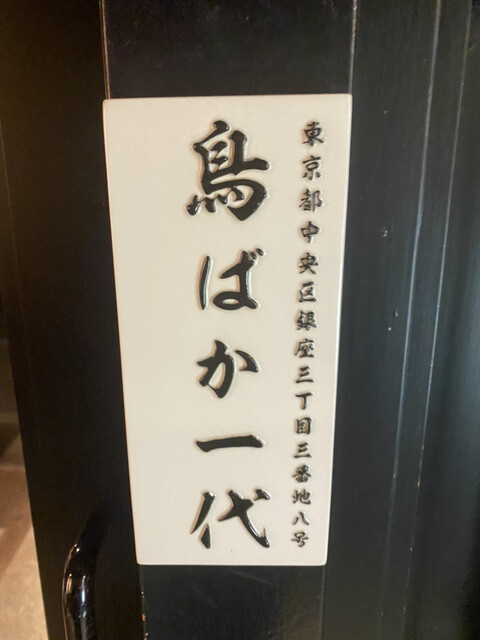 東京都中央区銀座三丁目三番地八号
鳥ばか一代